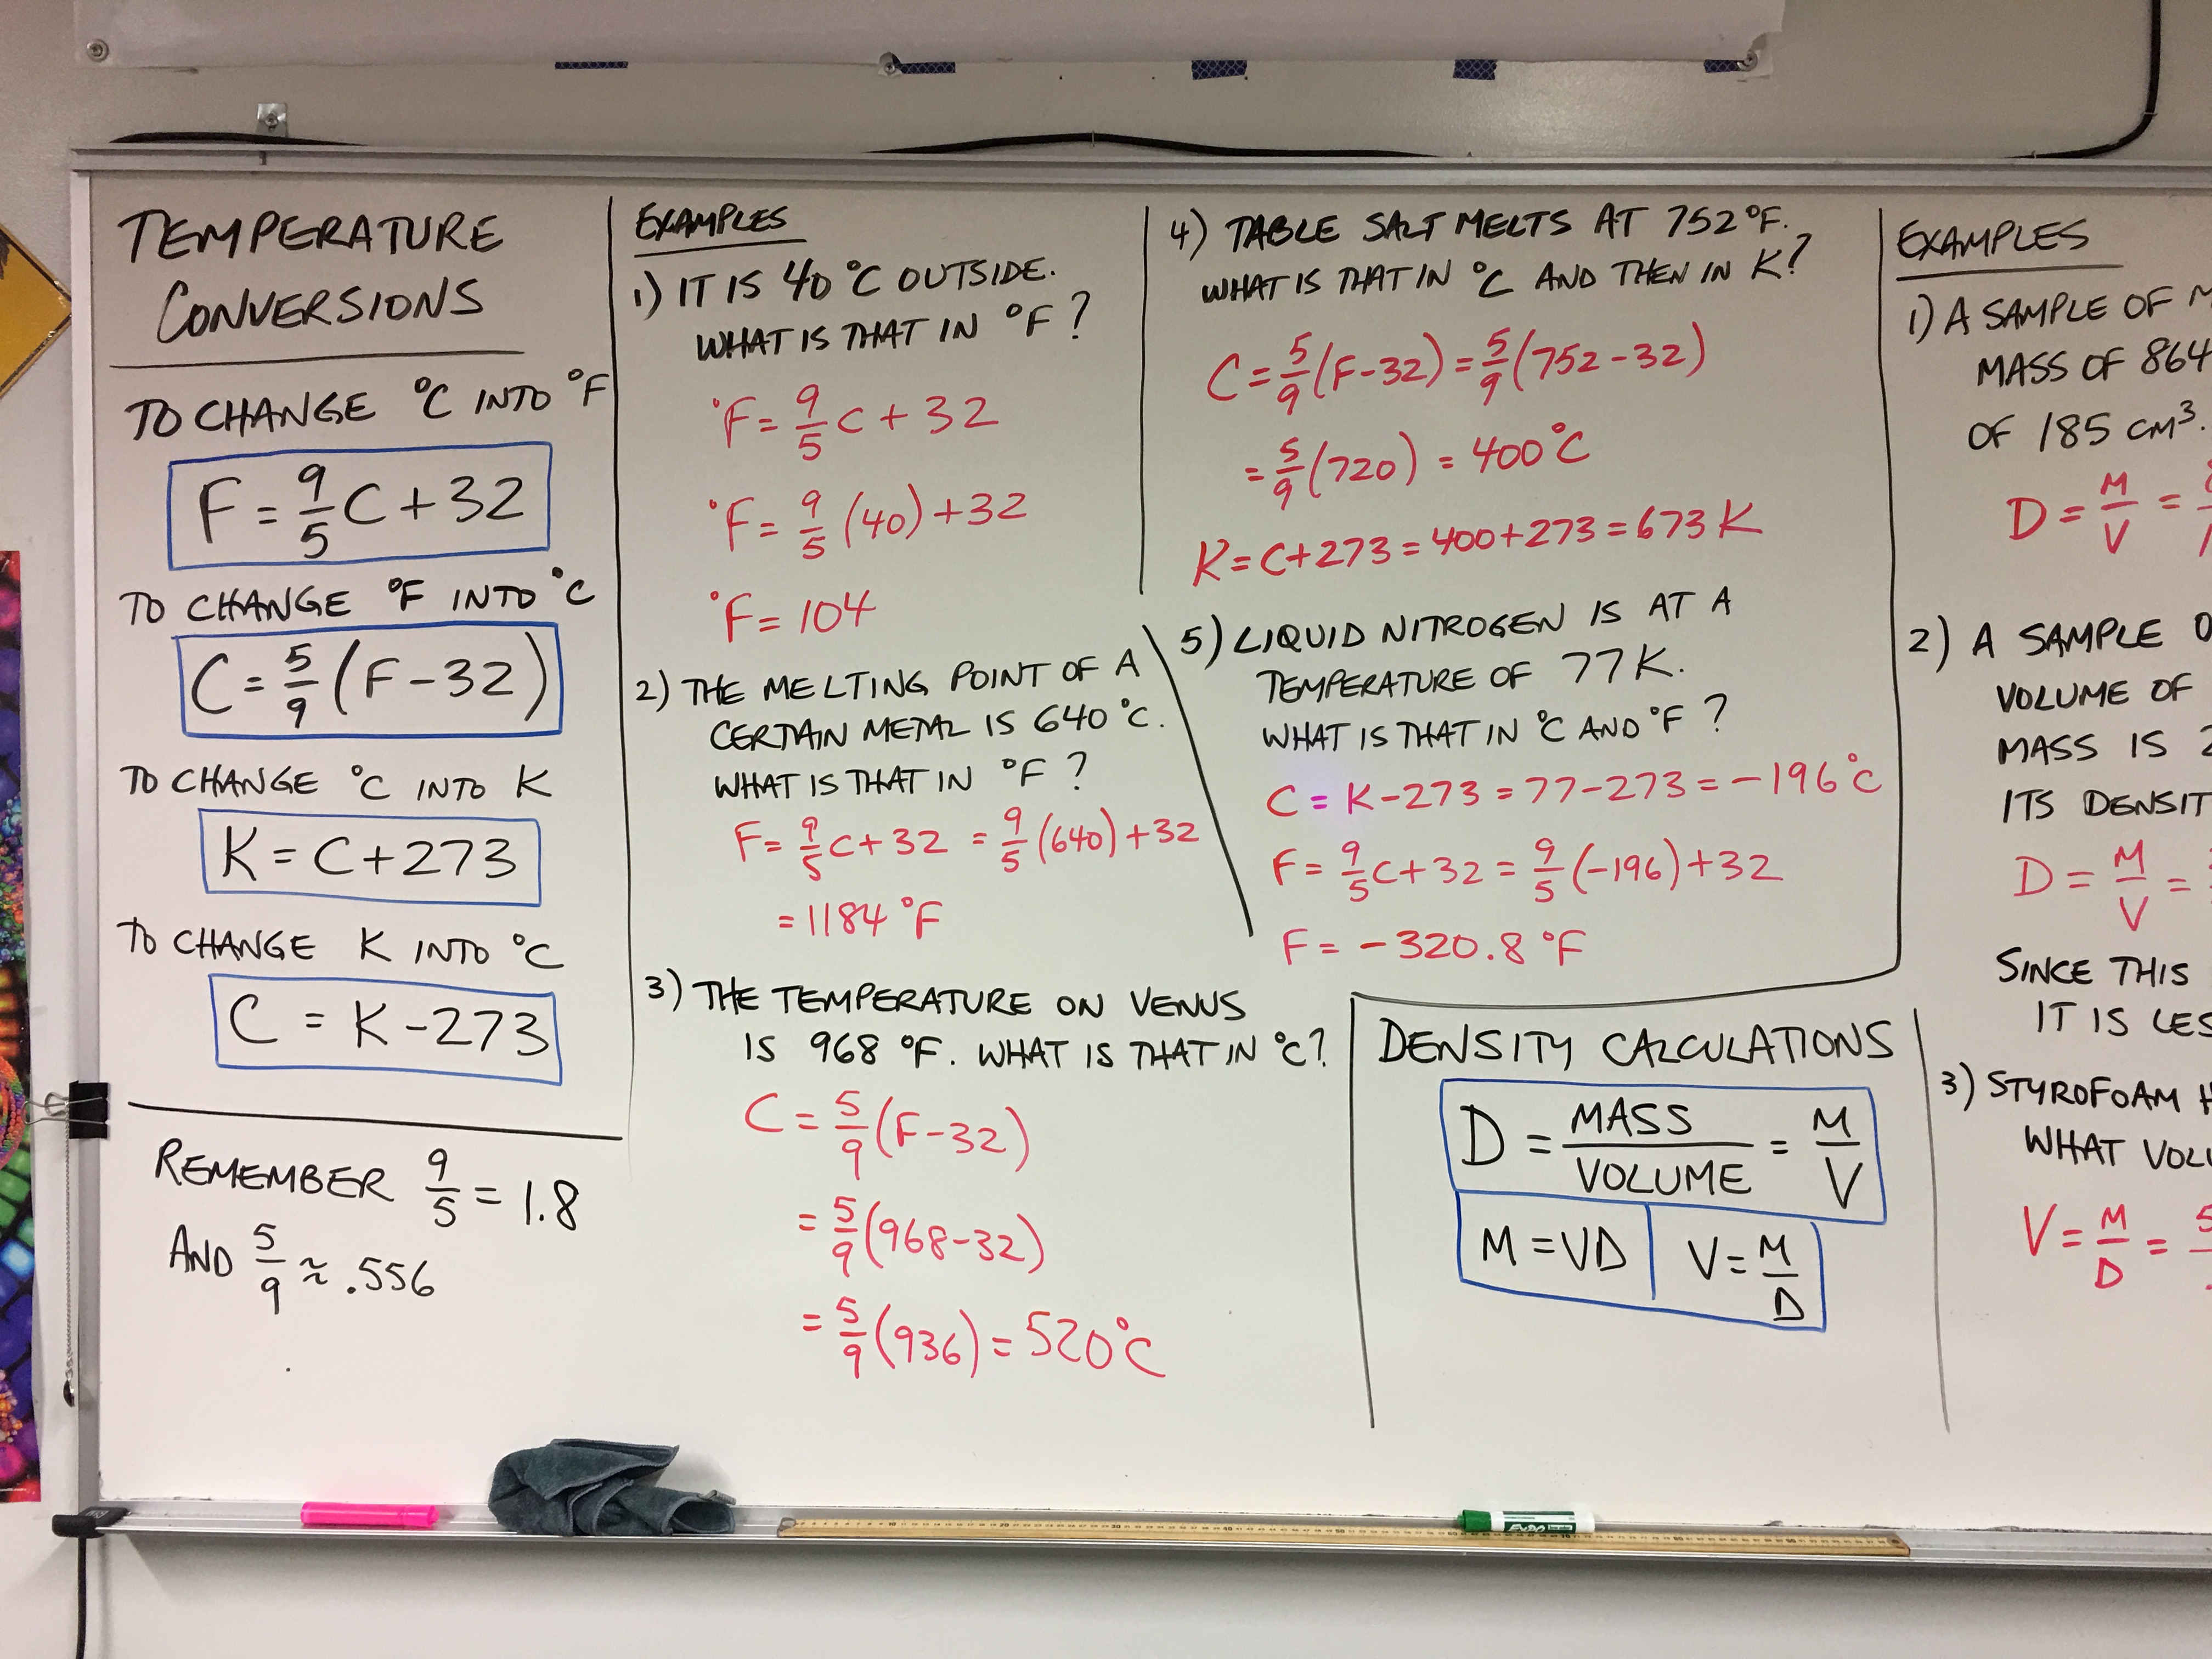 TEMPERATURE
CONVERSIONS
TO CHANGE °C INTO °F
F = 9/5 C + 32
TO CHANGE °F INTO °C
C = 5/9 (F - 32)
TO CHANGE °C INTO K
K = C + 273
TO CHANGE K INTO °C
C = K - 273
REMEMBER 9/5 = 1.8
AND 5/9 ≈ .556
EXAMPLES
1) IT IS 40 °C OUTSIDE.
WHAT IS THAT IN °F?
°F = 9/5 C + 32
°F = 9/5 (40) + 32
°F = 104
2) THE MELTING POINT OF A
CERTAIN METAL IS 640 °C.
WHAT IS THAT IN °F?
F = 9/5 C + 32 = 9/5 (640) + 32
= 1184 °F
3) THE TEMPERATURE ON VENUS
IS 968 °F. WHAT IS THAT IN °C?
C = 5/9 (F - 32)
= 5/9 (968 - 32)
= 5/9 (936) = 520°C
4) TABLE SALT MELTS AT 752 °F.
WHAT IS THAT IN °C AND THEN IN K?
C = 5/9 (F - 32) = 5/9 (752 - 32)
= 5/9 (720) = 400°C
K = C + 273 = 400 + 273 = 673 K
5) LIQUID NITROGEN IS AT A
TEMPERATURE OF 77 K.
WHAT IS THAT IN °C AND °F?
C = K - 273 = 77 - 273 = -196°C
F = 9/5 C + 32 = 9/5 (-196) + 32
F = -320.8 °F
DENSITY CALCULATIONS
D = MASS/VOLUME = M/V
M = VD
V = M/D
EXAMPLES
1) A SAMPLE OF M
MASS OF 864
OF 185 CM³.
D = M/V =
2) A SAMPLE O
VOLUME OF
MASS IS 2
ITS DENSIT
D = M/V =
SINCE THIS
IT IS LES
3) STYROFOAM H
WHAT VOLU
V = M/D = 5
EXPO